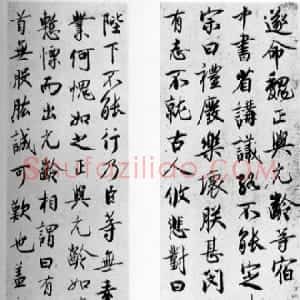 遂命魏正與元齡等宿
中書省講議終不能定
宗曰禮廢樂壞朕甚閔
有志不就古人攸悲對曰
陛下不能行臣等無素
業何愧如之正與元齡如
慙慄而出元齡相謂曰有
首無股肱誠可歎也蓋
Shufaziliao.com